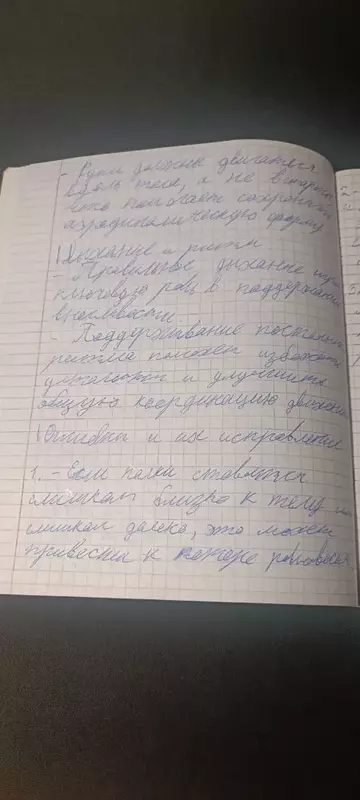 - Руки должны двигаться
вдоль тела, а не в стороны
что помогает сохранить
аэродинамическую форму
Дыхание и ритм
- Правильное дыхание иг
ключевую роль в поддержании
выносливости
- Поддерживание постоян
ритма поможет избежать
усталости и улучшить
общую координацию движен
Ошибки и их исправление
1. - Если палки ставятся
слишком близко к телу или
слишком далеко, это может
привести к потере равновесия
2
3